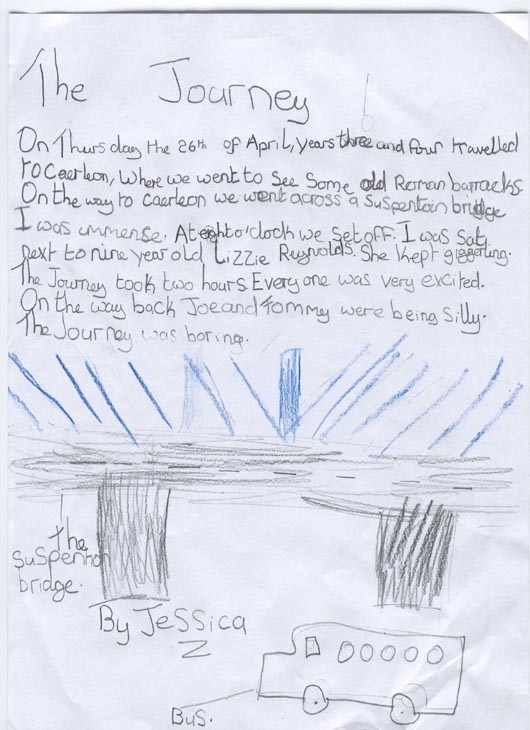 The Journey
On Thursday the 26th of April, years three and four travelled
to Caerleon, where we went to see some old Roman barracks
On the way to caerleon we went across a suspentoin bridge
I was immense. At eight o'clock we set off. I was sat
next to nine year old Lizzie Reynolds. She kept giggerling.
The Journey took two hours. Everyone was very excited.
On the way back Joe and Tommy were being silly.
The Journey was boring.
the
suspention
bridge.
By Jessica
Z
Bus.